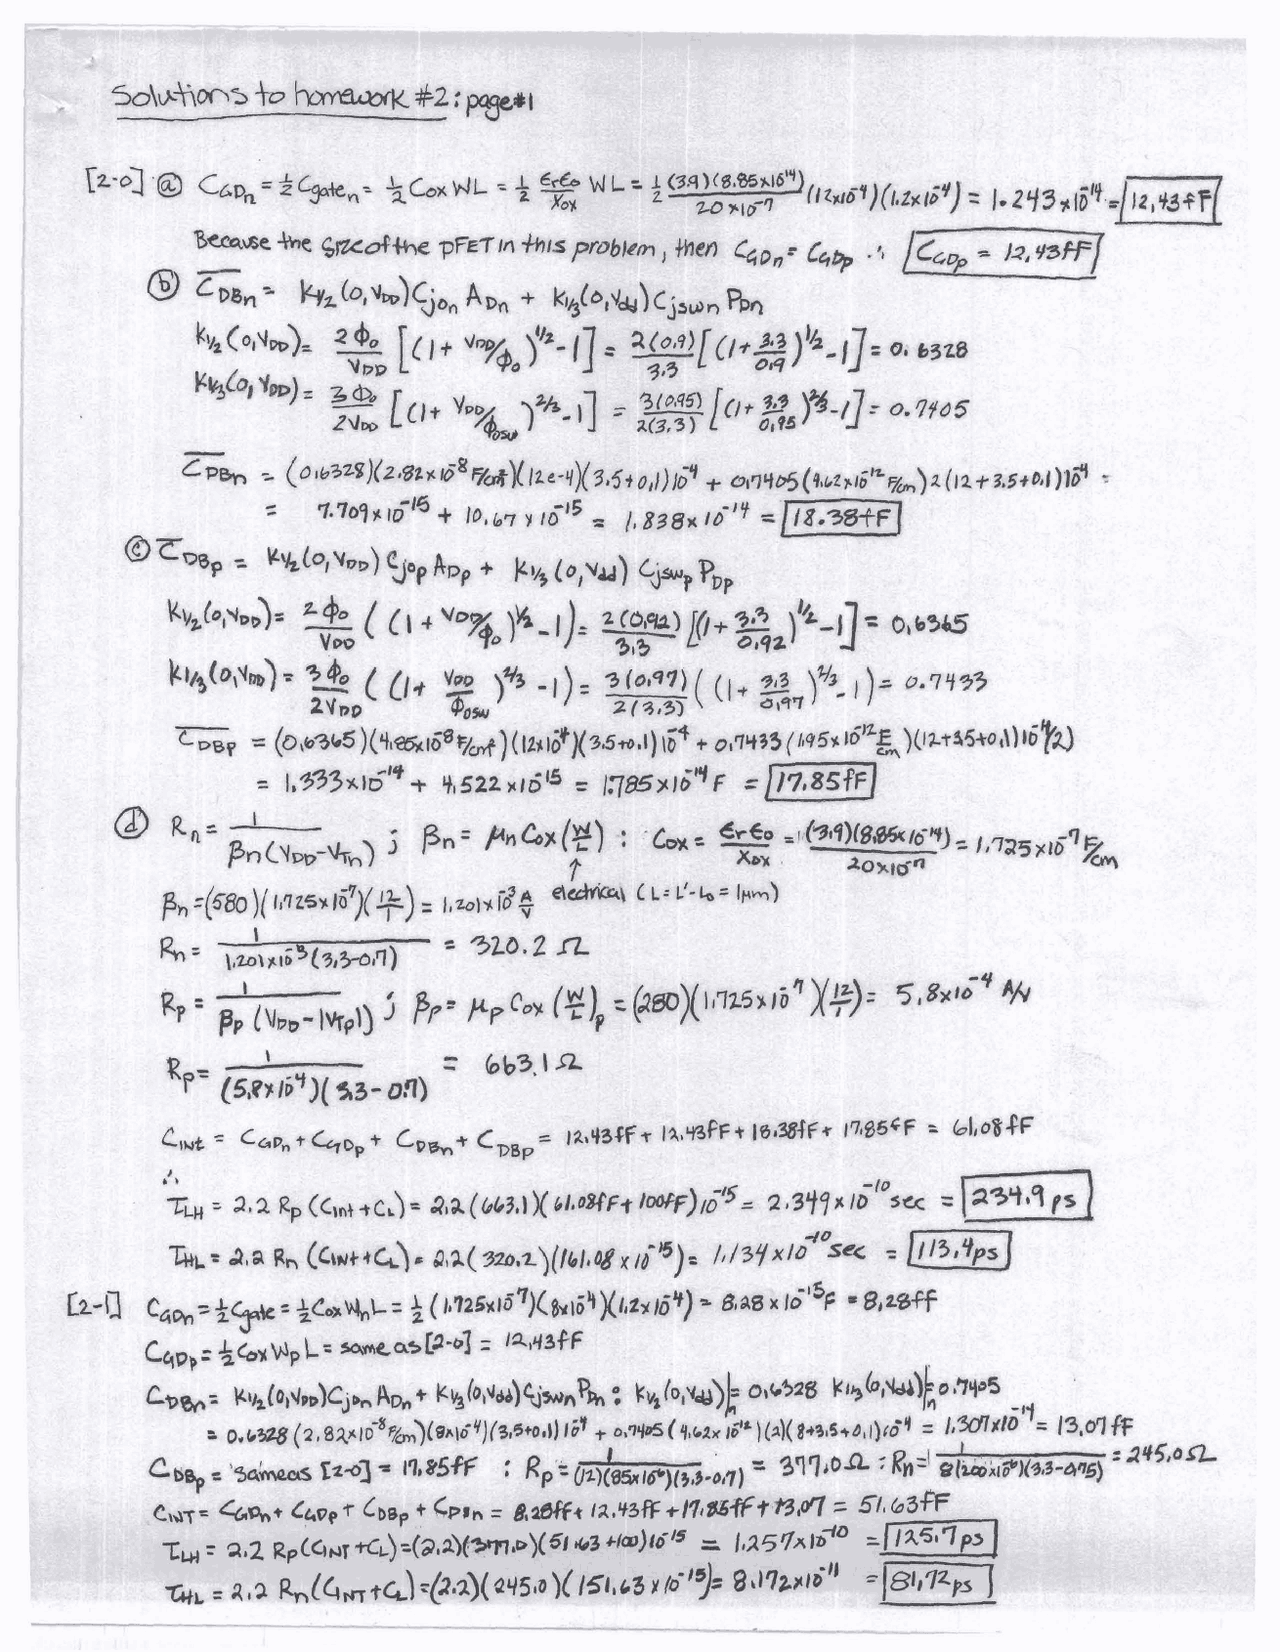 Solutions to homework #2: page#1
[2-0] (a) C_GDn = ½ C_gate_n = ½ Cox WL = ½ (ErEo/Xox) WL = ½ (3.9)(8.85×10^-14)/(20×10^-7) (12×10^-4)(1.2×10^-4) = 1.243×10^-14 = 12.43fF
Because the size of the pFET in this problem, then C_GDn = C_GDp ∴ C_GDp = 12.43fF
(b) C̅_DBn = K½(0,V_DD) Cjon A_Dn + K⅓(0,Vdd) Cjswn P_Dn
K½(0,V_DD) = 2Φo/V_DD [(1 + V_DD/Φo)^1/2 - 1] = 2(0.9)/3.3 [(1 + 3.3/0.9)^1/2 - 1] = 0.6328
K⅓(0,V_DD) = 3Φo/2V_DD [(1 + V_DD/Φosw)^2/3 - 1] = 3(0.95)/2(3.3) [(1 + 3.3/0.95)^2/3 - 1] = 0.7405
C̅_DBn = (0.6328)(2.82×10^-8 F/cm²)(12e-4)(3.5+0.1)10^-4 + 0.7405(4.62×10^-12 F/cm) 2(12+3.5+0.1)10^-4 =
= 7.709×10^-15 + 10.67×10^-15 = 1.838×10^-14 = 18.38fF
(c) C̅_DBp = K½(0,V_DD) Cjop A_Dp + K⅓(0,Vdd) Cjswp P_Dp
K½(0,V_DD) = 2Φo/V_DD ((1 + V_DD/Φo)^½ - 1) = 2(0.92)/3.3 [(1 + 3.3/0.92)^1/2 - 1] = 0.6365
K1/3(0,V_DD) = 3Φo/2V_DD ((1 + V_DD/Φosw)^2/3 - 1) = 3(0.97)/2(3.3) ((1 + 3.3/0.97)^2/3 - 1) = 0.7433
C̅_DBp = (0.6365)(4.85×10^-8 F/cm²)(12×10^-4)(3.5+0.1)10^-4 + 0.7433(1.95×10^-12 F/cm)(12+3.5+0.1)10^-4(2)
= 1.333×10^-14 + 4.522×10^-15 = 1.785×10^-14 F = 17.85fF
(d) Rn = 1/βn(V_DD-V_Tn) ; βn = μn Cox(W/L) : Cox = ErEo/Xox = (3.9)(8.85×10^-14)/20×10^-7 = 1.725×10^-7 F/cm
↑
βn = (580)(1.725×10^-7)(12/1) = 1.201×10^-3 A/V electrical (L = L'-Lo = 1μm)
Rn = 1/1.201×10^-3(3.3-0.7) = 320.2 Ω
Rp = 1/βp(V_DD-|V_Tp|) ; βp = μp Cox(W/L)p = (280)(1.725×10^-7)(12/1) = 5.8×10^-4 A/V
Rp = 1/(5.8×10^-4)(3.3-0.7) = 663.1Ω
C_INT = C_GDn + C_GDp + C_DBn + C_DBp = 12.43fF + 12.43fF + 18.38fF + 17.85fF = 61.08fF
∴
τ_LH = 2.2 Rp (Cint+C_L) = 2.2(663.1)(61.08fF+100fF)10^-15 = 2.349×10^-10 sec = 234.9 ps
τ_HL = 2.2 Rn (C_INT+C_L) = 2.2(320.2)(161.08×10^-15) = 1.134×10^-10 sec = 113.4ps
[2-1] C_GDn = ½ Cgate = ½ Cox Wn L = ½ (1.725×10^-7)(8×10^-4)(1.2×10^-4) = 8.28×10^-15 F = 8.28fF
C_GDp = ½ Cox Wp L = same as [2-0] = 12.43fF
C_DBn = K½(0,V_DD)Cjon A_Dn + K⅓(0,Vdd)Cjswn P_Dn : K½(0,Vdd)|n = 0.6328 K1/3(0,Vdd)|n = 0.7405
= 0.6328(2.82×10^-8 F/cm)(8×10^-4)(3.5+0.1)10^-4 + 0.7405(4.62×10^-12)(2)(8+3.5+0.1)10^-4 = 1.307×10^-14 = 13.07fF
C_DBp = same as [2-0] = 17.85fF : Rp = 1/(12)(85×10^-6)(3.3-0.7) = 377.0Ω : Rn = 1/8(200×10^-6)(3.3-0.75) = 245.0Ω
C_INT = C_GDn + C_GDp + C_DBp + C_DBn = 8.28fF + 12.43fF + 17.85fF + 13.07 = 51.63fF
τ_LH = 2.2 Rp(C_INT+C_L) = (2.2)(377.0)(51.63+100)10^-15 = 1.257×10^-10 = 125.7ps
τ_HL = 2.2 Rn(C_INT+C_L) = (2.2)(245.0)(151.63×10^-15) = 8.172×10^-11 = 81.72ps